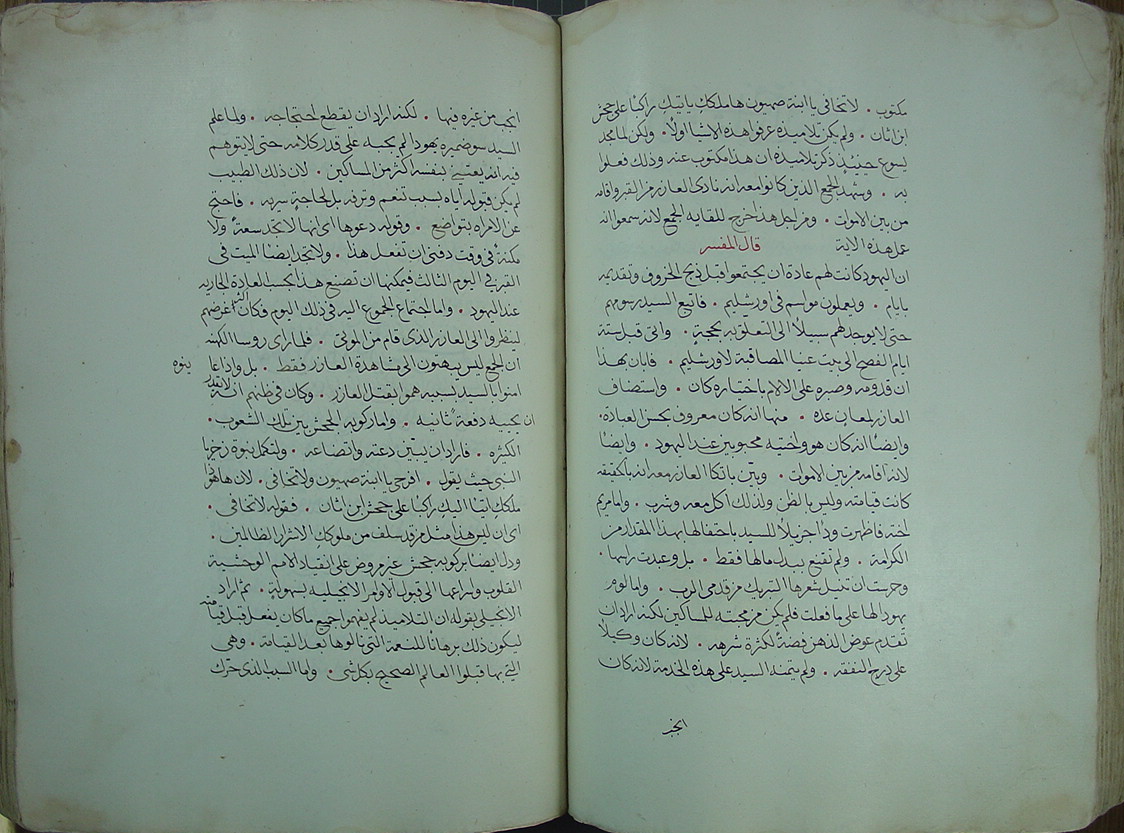 مكتوب . لا تخافي يا ابنة صهيون ها ملكك ياتيك راكبا على جحش
ابن اتان . ولم يكن تلاميذه عرفوا هذه الاشيا اولا . ولكن لما مجد
يسوع حينيذ ذكر تلاميذه ان هذا مكتوب عنه وذلك فعلوا
به . وشهد الجمع الذين كانوا معه انه نادى العازر من القبر واقامه
من بين الاموات . ومن اجل هذا خرج للقايه الجمع لانه سمعوا انه
عمل هذه الاية قال المفسر
ان اليهود كانت لهم عادة ان يجتمعوا قبل ذبح الخروف وتقديمه
بايام . ويعملون مواسم في اورشليم . فاتبع السيد رسومهم
حتى لا يوجد لهم سبيلا الى التعلق به بحجة . واتى قبل ستة
ايام الفصح الى بيت عنيا المصاقبة لاورشليم . فابان بهذا
ان قدومه وصبره على الالام باختياره كان . واستضاف
العازر لمعان عده . منها انه كان معروف بحسن العبادة .
وايضا انه كان هو واختيه محبوبين عند اليهود . وايضا
لانه اقامه من بين الاموات . وبين باتكا العازر معه انه بالحقيقه
كانت قيامته وليس بالظن ولذلك اكل معه وشرب . واما مريم
اخته فاظهرت ودا جزيلا للسيد باحتفالها بهذا المقدار من
الكرامة . ولم تقنع ببدل مالها فقط . بل وعدت راسها
وحرست ان تنيل شعرها التبريك من قدمي الرب . واما لوم
يهودا لها على ما فعلت فلم يكن من محبته للمساكين لكنه اراد ان
تقدم عوض الدهن فضة لكثرة شرهه . لانه كان وكيلا
على درج النفقه . ولم يتمنه السيد على هذه الخدمة لانه كان
انجب من غيره فيها . لكنه اراد ان يقطع احتجاجه . ولما علم
السيد سو ضميره يهودا لم يجبه على قدر كلامه حتى لا يتوهم
فيه انه يعتني بنفسه اكثر من المساكين . لان ذلك الطيب
لم يكن قبوله اياه بسبب تنعم وترفه بل لحاجة سريه . فاحتج
عن الامراه بتواضع . وقوله دعوها اى انها لا تجد سعة ولا
مكنة في وقت دفني ان تفعل هذا . ولا تجد ايضا الميت فى
القبر في اليوم الثالث فيمكنها ان تصنع هذا بحسب العادة الجاريه
عند اليهود . واما اجتماع الجموع اليه في ذلك اليوم فكان اكثر غرضهم
لينظروا الى العازر الذى قام من الموتى . فلما راى روسا الكهنه
ان الجمع ليس ينتهون الى مشاهدة العازر فقط . بل واذا عاينوه
امنوا بالسيد بسببه هموا بقتل العازر . وكان في ظنهم انه لا يقدر
ان يحييه دفعة ثانيه . واما ركوبه الجحش بين تلك الشعوب
الكثيره . فاراد ان يبين دعته واتضاعه . ولتكمل نبوة زخريا
النبي حيث يقول . افرحي يا ابنة صهيون ولا تخافي . لان ها هوذا
ملكك اتيا اليك راكبا على جحش ابن اتان . فقوله لا تخافي .
اى ان ليس هذا مثل من قد سلف من ملوكك الاشرار الظالمين .
ودل ايضا بركوبه جحش غير مروض على انقياد الامم الوحشية
القلوب واسراعها الى قبول الاوامر الانجيليه بسهولة . ثم اراد
الانجيلي بقوله ان التلاميذ لم يفهموا جميع ما كان يفعل قبل قيامته
ليكون ذلك برهانا للنعمة التي نالوها بعد القيامة . وهي
التي بها قبلوا العالم الصحيح بكل شي . واما السبب الذى حرك